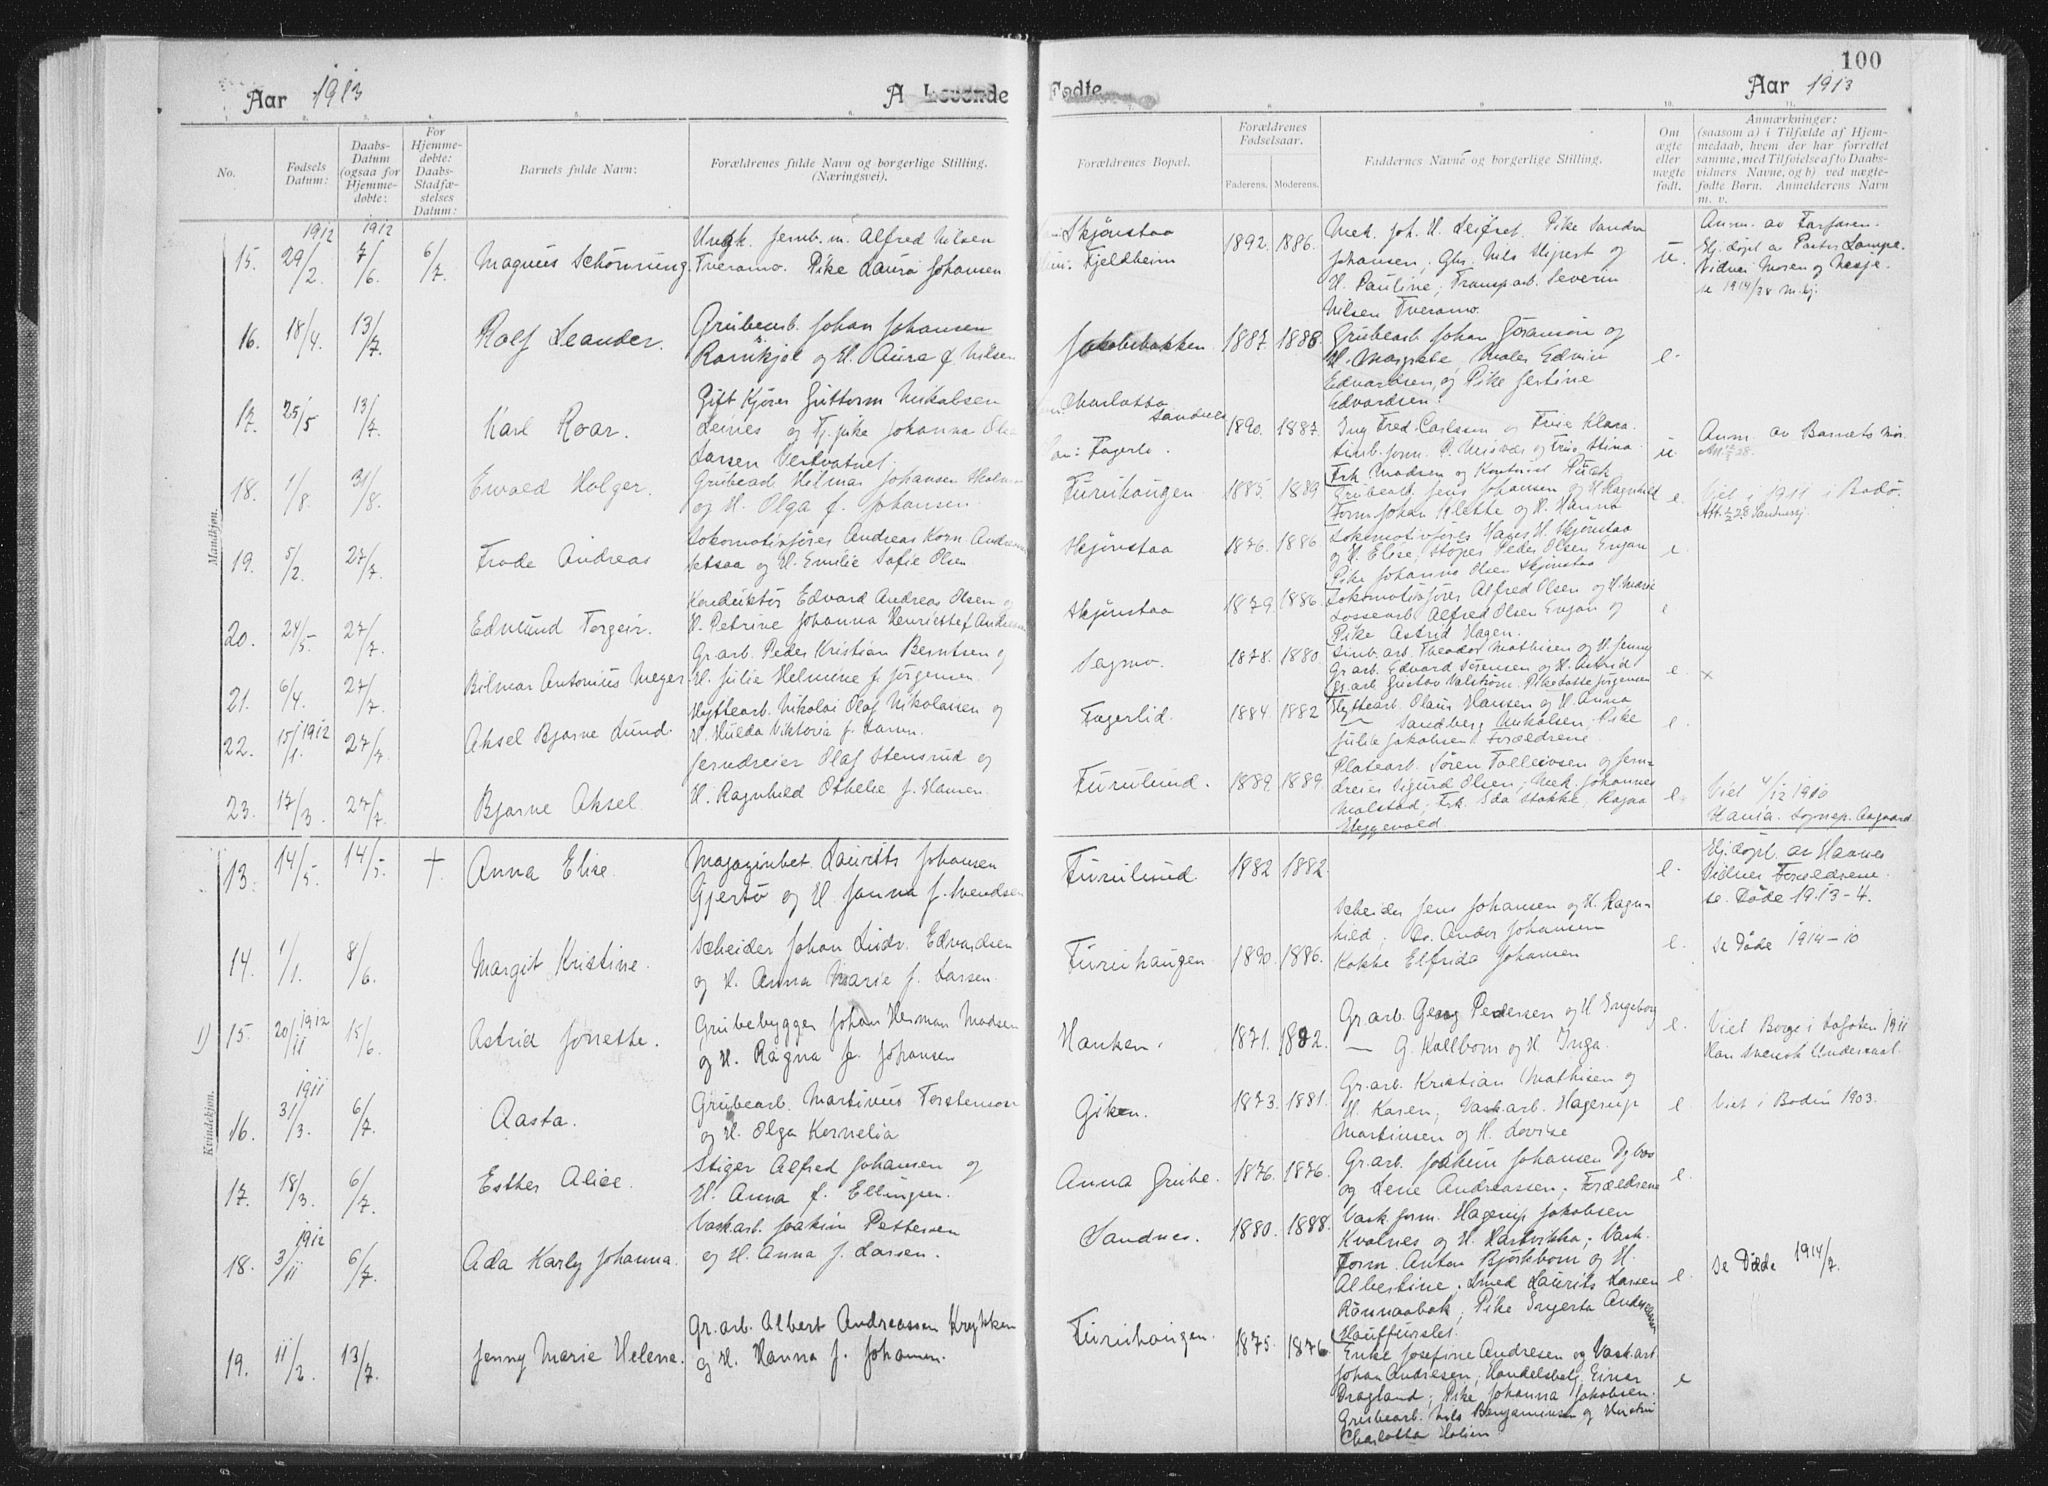 100
Aar 1913
A. Levende Fødte
Aar 1913
1. 2. 3. 4. 5. 6. 8. 9. 10. 11.
No.
Fødsels Datum:
Daabs-Datum (ogsaa for Hjemme-døbte:
For Hjemme-døbte: Daabs-Stadfæ-stelses Datum:
Barnets fulde Navn:
Forældrenes fulde Navn og borgerlige Stilling. (Næringsvei).
Forældrenes Bopæl.
Forældrenes Fødselsaar.
Faderens. Moderens.
Faddernes Navne og borgerlige Stilling.
Om ægte eller uægte født.
Anmærkninger: (saasom a) i Tilfælde af Hjem-medaab, hvem der har forrettet samme, med Tilføielse af to Daabs-vidners Navne, og b) ved uægte-fødte Børn. Anmelderens Navn m. v.
Mandkjøn.
15. 1912 29/2 1912 7/6 6/7 Magnus Schönning
Ungk. Jernb.m. Alfred Nilsen
Tveramo. Pike Laura Johansen
Skjønstaa
Fjeldheim
1892. 1886.
Mek. Joh. H. Leifset. Pike Sandra
Johansen, Gbr. Nils Mipest og
H. Pauline, Transp.arb. Severin
Nilsen Tveramo.
u.
Anm. av Farfaren.
Hj.døpt av Pastor Lampe.
Vidner Moren og
se 1914/28 m.kj.
16. 18/4 13/7 Rolf Leander.
Grubearb. Johan Johansen
Ramskjel og H. Aura f. Nilsen
Jakobsbakken 1887. 1888.
Grubearb. Johan Göransson og
H. Margrete, Maler Edvin
Edvardsen, og Pike Jertine
Edvardsen.
e.
17. 25/5 13/7 Karl Roar.
Gift Kjører Guttorm Nikolaisen
Leines og Tj.pike Johanna
Larsen Vestvatnet
Charlotta
Sandnes
Fagerli.
1890. 1887.
Ing. Fred. Carlsson og Frue Klara.
og Frue Stina.
Frk. Madsen og Kontorist
u.
Anm. av Barnets Mor.
18. 1/8 31/8 Ewald Holger.
Grubearb. Hilmar Johansen
og H. Olga f. Johansen.
Furuhaugen 1885. 1889.
Grubearb. Jens Johansen og H. Ragnhild
Form. Johan Klette og H. Hanna
e.
Viet i 1911 i Bodø.
19. 5/2 27/7 Frode Andreas
Lokomotivfører Andreas Korn Andreasen
Setsaa og H. Emilie Sofie Olsen
Skjønstaa 1876. 1886
Lokomotivfører Hages H. Skjønstaa
og H. Elise, Støper Peder Olsen Engan
Pike Johanna Olsen Skjønstaa
e.
20. 24/5. 27/7. Edmund Torgeir.
Konduktør Edvard Andreas Olsen og
H. Petrine Johanna Henriette f. Andreasen
Skjønstaa 1879. 1886.
Lokomotivfører Alfred Olsen og H. Marie
Lossearb. Alfred Olsen Engan og
Pike Astrid Hagen.
e
21. 6/4. 27/7. Bilmar Antonius Meyer
Gr.arb. Peder Kristian Berntsen og
H. Julie Helmine f. Jørgensen.
Sagmo. 1878. 1880
Theodor Mathisen og H. Jenny
Gr.arb. Edvard Sørensen og H. Astrid
Gr.arb. Gustav Valstrøm. Pike Lotte Jørgensen
e. ×
22. 15/1. 1912 27/7 Aksel Bjarne Lund.
Hyttearb. Nikolai Olaf Nikolaisen og
H. Hulda Viktoria f. Larsen.
Fagerlid. 1884. 1882
Hyttearb. Olaus Hansen og H. Anna
— Sandberg Mikalsen, Pike
Julie Jakobsen, Forældrene.
e.
23. 17/3. 27/7. Bjarne Aksel.
Jerndreier Olaf Stensrud og
H. Ragnhild Othelie f. Hansen.
Furulund. 1889. 1889.
Platearb. Søren Tolleivsen og Jern-
dreier Sigurd Olsen, Mek. Johannes
Malstad, Frk. Ida Stokke, Kajsa
Hyggevold
e.
Viet 4/12 1910
Hania. Sognep. Aagaard
Kvindekjøn.
13. 14/5. 14/5. † Anna Elise.
Magazinbet. Laurits Johansen
Gjertø og H. Janna f. Svendsen
Furulund 1882 1882.
e.
Hj.døpt av Haanes
Vidner Forældrene.
se. Døde 1913-4.
14. 1/1. 8/6. Margit Kristine.
Scheider Johan Ludv. Edvardsen
og H. Anna Marie f. Larsen.
Furuhaugen 1890. 1886.
Scheider Jens Johansen og H. Ragn-
hild, Anders Johansen
Kokke Elfrida Johansen
e.
se Døde 1914-10
1) 15. 20/11 1912 15/6. Astrid Jonette.
Grubebygger Johan Herman Madsen
og H. Ragna f. Johansen
Hanken. 1871. 1882.
Gr.arb. Georg Pedersen og H. Ingeborg
— G. Kallbom og H. Inga.
e.
Viet Borge i Lofoten 1911
Han Svensk Undersaat.
16. 1911 31/3. 6/7. Aasta.
Grubearb. Martinus Torstensen
og H. Olga Kornelia
Giken. 1873. 1881.
Gr.arb. Kristian Mathisen og
H. Karen, Vask.arb. Hagerup
Martinsen og H. Lovise
e
Viet i Bodin 1903.
17. 18/3. 6/7. Esther Alice.
Stiger Alfred Johansen og
H. Anna f. Ellingsen.
Anna Grube. 1876. 1876.
Gr.arb. Joakim Johansen Dybos
og Lene Andreassen, Forældrene
e.
18. 1912 3/11 6/7 Ada Karly Johanna.
Vaskarb. Joakim Pettersen
og H. Anna f. Larsen.
Sandnes. 1880. 1888.
Vask.form. Hagerup Jakobsen
Kvalnes og H. Hartvikka, Vask.
Form. Anton Bjørkbom og H.
Albertine. Smed Laurits Larsen
Rønnaabak, Pike Ingerta Andreassen
Hauffurslet.
e.
se Døde 1914/7.
19. 11/2. 13/7. Jenny Marie Helene.
Gr.arb. Albert Andreassen Krykken
og H. Hanna f. Johansen.
Furuhaugen. 1875. 1876
Enke Josefine Andresen og Vaskarb.
Johan Andresen, Handelsbetj. Einar
Dragland, Pike Johanna Jakobsen.
Grubearb. Nils Benjaminsen og Hustru
Charlotta
e